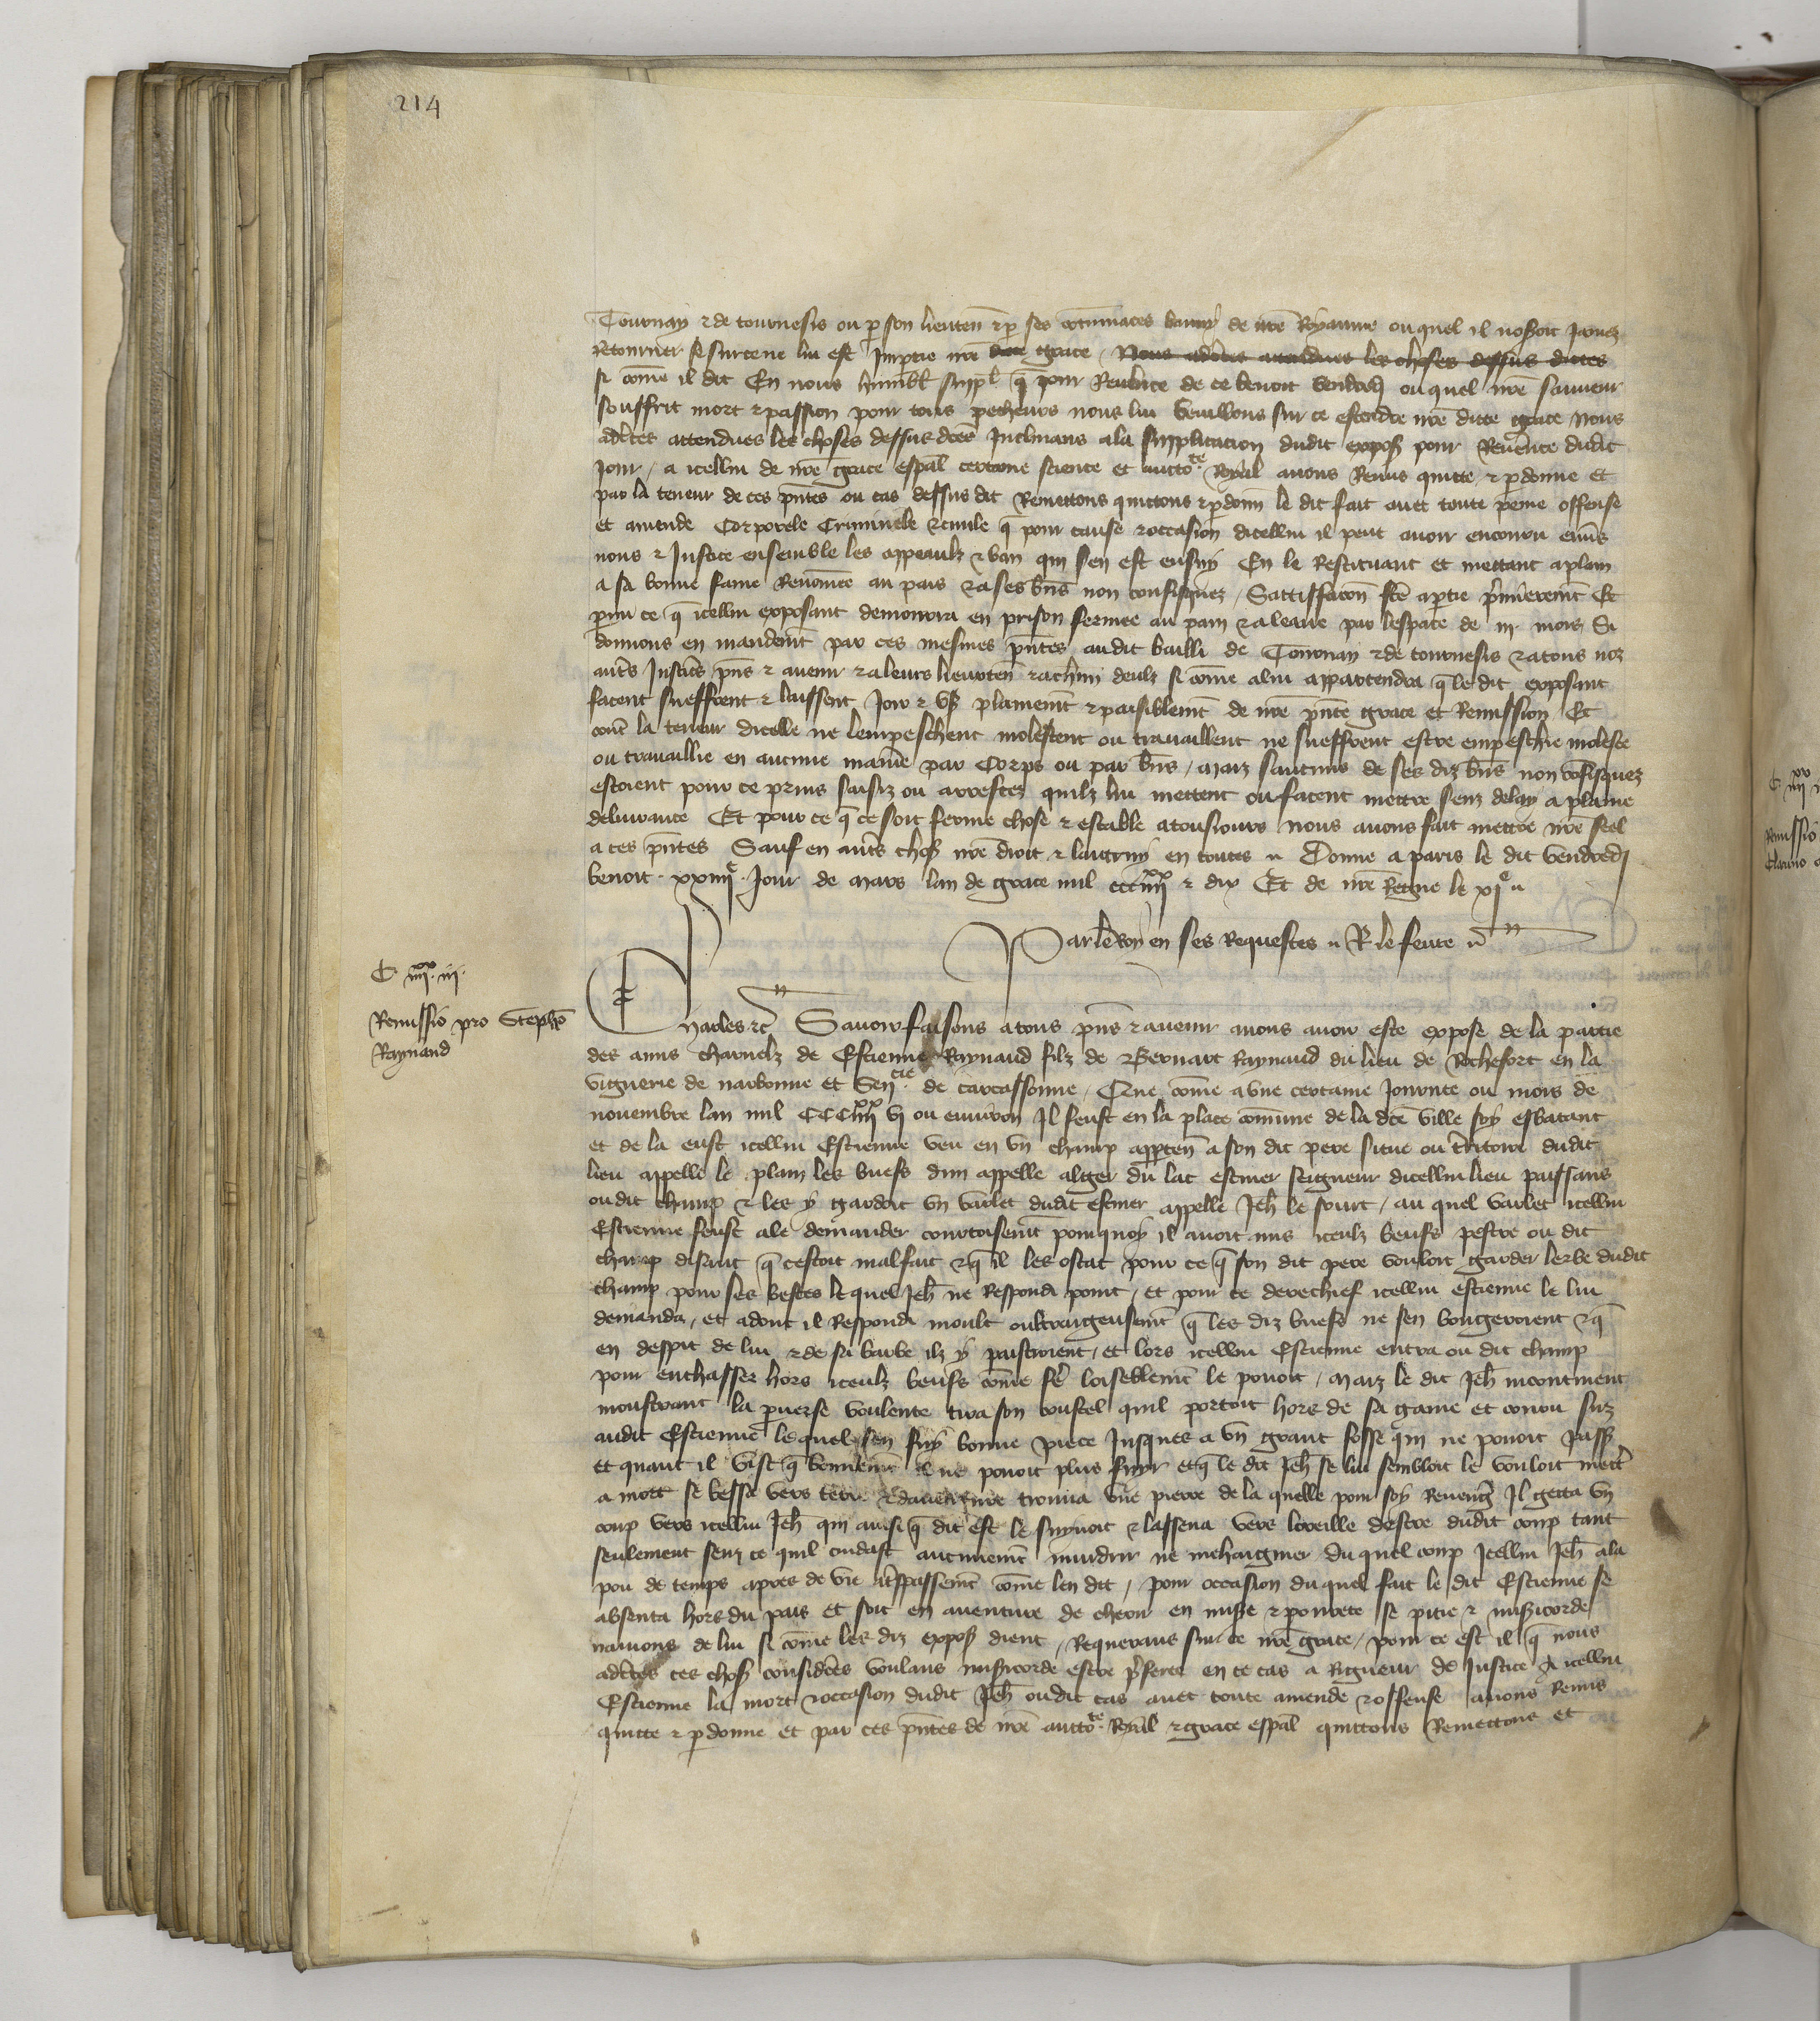 214
Tournay & de tournesis ou p son lieuten & p ses contumaces banny de nre Royaume ou quel il noseroit jamez
Retourner se sur ce ne lui est Impartie nre dicte grace, Nous adctes attendues les choses dessus dictes
si come il dit En nous humblt suppl q pour Reudnce de ce benoit vendredj ou quel nre sauueur
souffrit mort & passion pour tous pecheurs nous lui vueillions sur ce estendre nre dicte grace Nous
adctes attendues les choses dessus dces Inclinans a la supplicacion dudit expos pour Reuerence dudit
Jour, a icellui de nre grace espal certaine science et auctote Royal auons Remis quitte & pdonne et
par la teneur de ces pntes ou cas dessus dit Remettons quittons & pdonn le dit fait auec toute peine offense
et amende Corporele Criminele & ciuile q pour cause & occasion dicellui il peut auoir encouru enus
nous & Justice ensemble les appeaulx & ban qui sen est ensuy En le Restituant et mettant aplain
a sa bonne fame Renomee au pais & a ses bns non confisquez, Sattisfacon fce a ptie primierement Et
pmi ce q icellui exposant demourra en prison fermee au pain & a leaue par lespace de iij mois Si
donnons en mandemt par ces mesmes pntes au dit bailli de Tournay & de tournesis & a tous noz
autrs Justicrs pns & auenir & a leurs lieuxten & a chun deulx si come a lui appartendra q le dit exposant
facent sueffrent & laissent Joir & us plainemt & paisiblemt de nre pnte grace et Remission Et
contr la teneur dicelle ne lempeschent molestent ou trauaillent ne sueffrent estre empeschie moleste
ou trauaillie en aucune maniere par Corps ou par bns, maiz saucuns de ses diz bns non confisquez
estoient pour ce prins saisiz ou arrestez quilz lui mettent ou facent mettre senz delay a plaine
deliurance Et pour ce q ce soit ferme chose & estable a tousiours nous auons fait mettre nre seel
a ces pntes Sauf en autrs chos nre droit & lautruy en toutes Donne a paris le dit vendredj
benoit xxiiije Jour de mars lan de grace mil ccc iiijxx & dix Et de nre Regne le xje
Par le Roy en ses Requestes R lefeure
C iiijxx iij
Remissio pro Stepho
Raynaud
Charles &c Sauoir faisons a tous pns & auenir a nous auoir este expose de la partie
des amis charnelz de Estienne Raynaud filz de Bernart Raynaud du lieu de Rochefort en la
viguerie de narbonne et Sencie de carcassonne, Que come a une certaine Journee ou mois de
nouembre lan mil CCC iiijxx vj ou enuiron Il feust en la place comune de la dce ville soy esbatant
et de la eust icellui Estienne veu en un champ apparten a son dit pere situe ou tritoire dudit
lieu appelle le plain les buefs dun appelle altger du lac escuier seigneur dicellui lieu paissans
ou dit champ & les y gardoit un varlet dudit escuier appelle Jeh le sourt, au quel varlet icellui
Estienne feust ale demander courtoisemt pourquoy il auoit mis iceulx beufs pestre ou dit
champ disant q cestoit malfait & q il les ostat pour ce q son dit pere vouloit garder lerbe dudit
champ pour ses bestes le quel Jeh ne Respondi point, et pour ce derechief icellui estienne le lui
demanda, et adont il Respondi moult oultraigeusemt q les diz buefs ne sen bougeroient & q
en despit de lui & de sa barbe ilz y paistroient, et lors icellui Estienne entra ou dit champ
pour enchasser hors iceulx beufs come fere loisiblemt le pouoit, maiz le dit Jeh incontinent
monstrant la puerse voulente tira son coustel quil portoit hors de sa gaine et couru suz
audit Estienne le quel sen fuy bonne piece Jusques a un grant fosse qui ne pouoit pass
et quant il vist q bonnemt il ne pouoit plus fuyr et q le dit Jeh se lui sembloit le vouloit mettr
a mort se bessa vers terre & dauenture trouua une pierre de la quelle pour soy Reueng Il getta un
coup vers icellui Jeh qui ainsi q dit est le suyuoit & lassena vers loreille destre dudit coup tant
seulement senz ce quil cuidast aucunemt murdrir ne mehaigner du quel coup Icellui Jeh ala
pou de temps apres de vie a trespassemt come len dit, pour occasion du quel fait le dit Estienne se
absenta hors du pais et soit en auenture de cheoir en mise & pourete se pitie & misicorde
nauions de lui si come les diz expos dient, Requerans sur ce nre grace, pour ce est il q nous
adctes ces chos considees voulans misicorde estre pferee en ce cas a Rigueur de Justice A icellui
Estienne la mort & occasion dudit Jeh ou dit cas auec toute amende & offense auons Remis
quitte & pdonne et par ces pntes de nre auctote Royal & grace espal quittons Remettons et